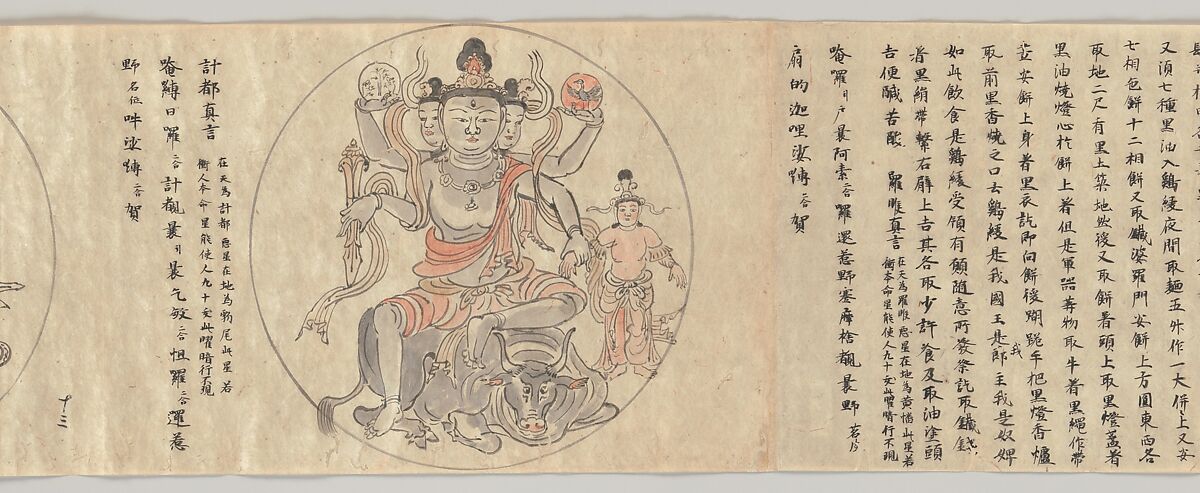 又須七種黑油入鷄緩夜間取麺五升作一大餅上又安
七相色餅十二相餅又取鐵婆羅門安餅上方圓東西各
取地二尺有黑土築地然後又取餅着頭上取黑燈蓋着
黑油燒燈心於餅上着但是軍器等物取牛着黑繩作帶
並安餅上身着黑衣訖即向餅後踟跪手把黑燈香爐
我
取前黑香燒之口云鷄緩是我國王是郎主我是奴婢
如此飲食是鷄緩受領有願隨意所發祭訖取鐵
者黑絹帶繫右臂上吉其各取少許食及取油塗頭
吉便鹹苦酸 羅睺真言 在天為羅睺惡星在地為黃幡此星若
衝本命星能使人九十文此曜暗行不現
唵羅引戶曩阿素二合羅還惹野塞摩捨覩曩野
扇的迦哩娑嚩二合賀
計都真言 在天為計都惡星在地為豹尾此星若
衝人本命星能使人九十文此曜暗行不現
唵嚩日羅二合計覩曩引曩乞 二合怛羅二合邏惹
野名 吽娑嚩二合賀
十三